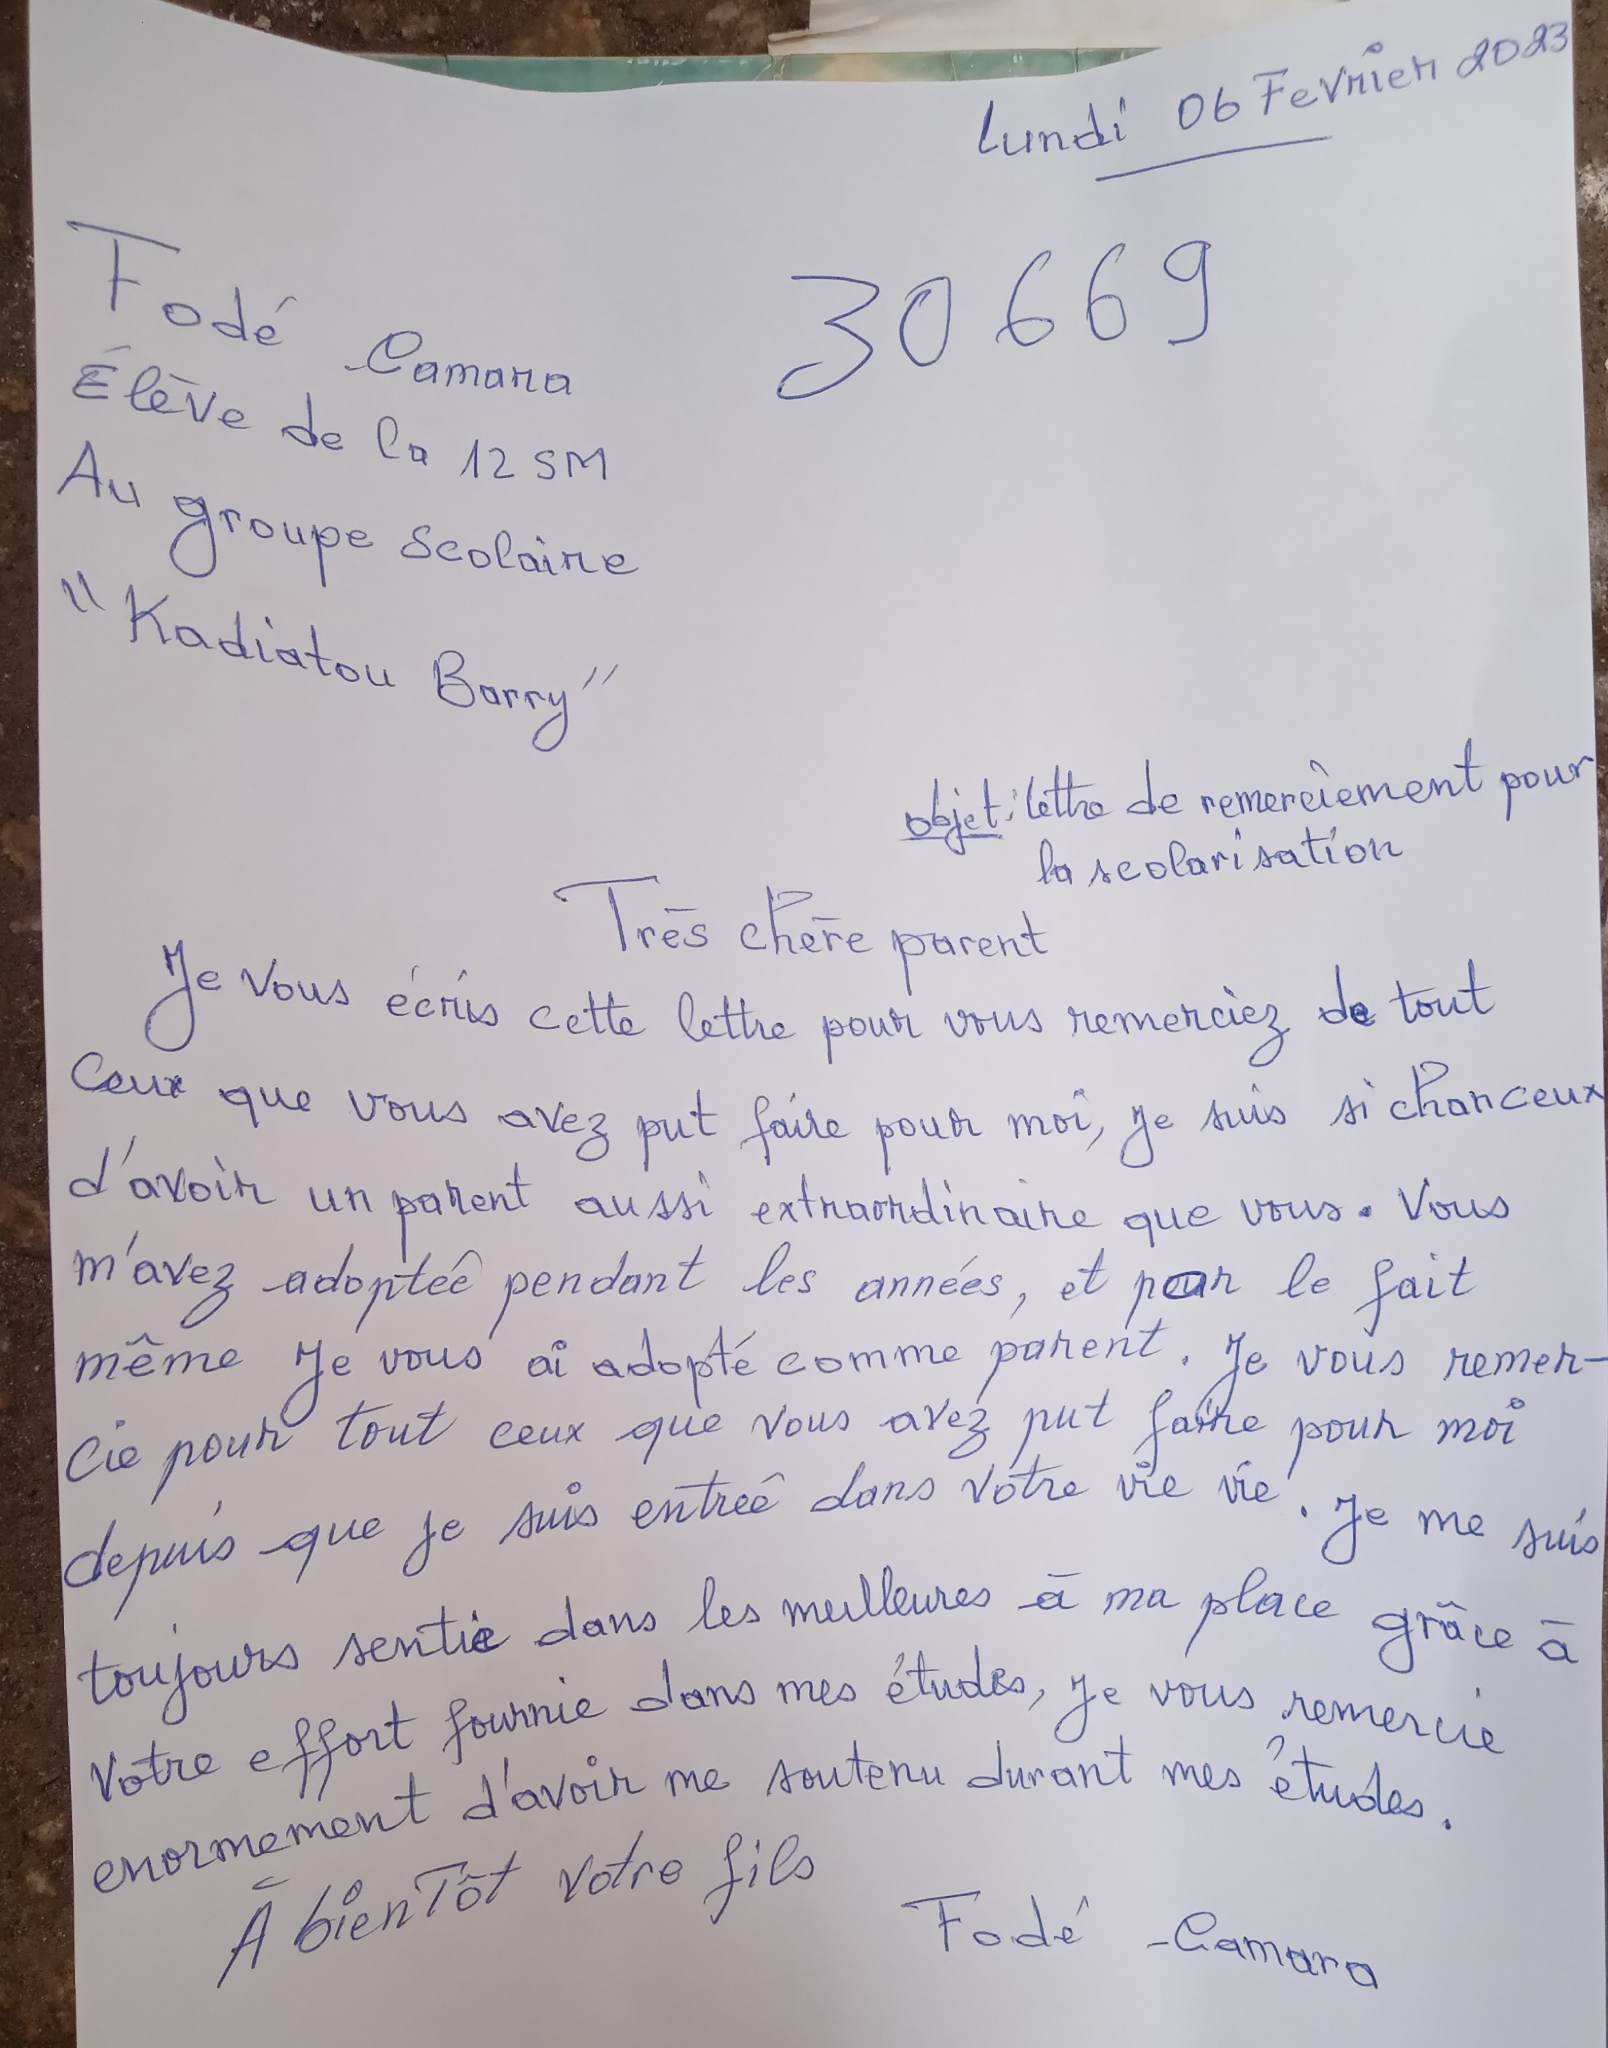 Lundi 06 Fevrier 2023
Fodé Camara
30669
Élève de la 12 SM
Au groupe scolaire
"Kadiatou Barry"
objet: lettre de remerciement pour
la scolarisation
Très chère parent
Je vous écris cette lettre pour vous remerciez de tout
Ceux que vous avez put faire pour moi, je suis si chanceux
d'avoir un parent aussi extraordinaire que vous. Vous
m'avez adoptée pendant les années, et par le fait
même je vous ai adopté comme parent. Je vous remer-
cie pour tout ceux que vous avez put faire pour moi
depuis que je suis entrée dans votre vie vie. Je me suis
toujours sentie dans les meilleures à ma place grâce à
votre effort fournie dans mes études, je vous remercie
enormement d'avoir me soutenu durant mes études.
À bientôt votre fils
Fodé Camara